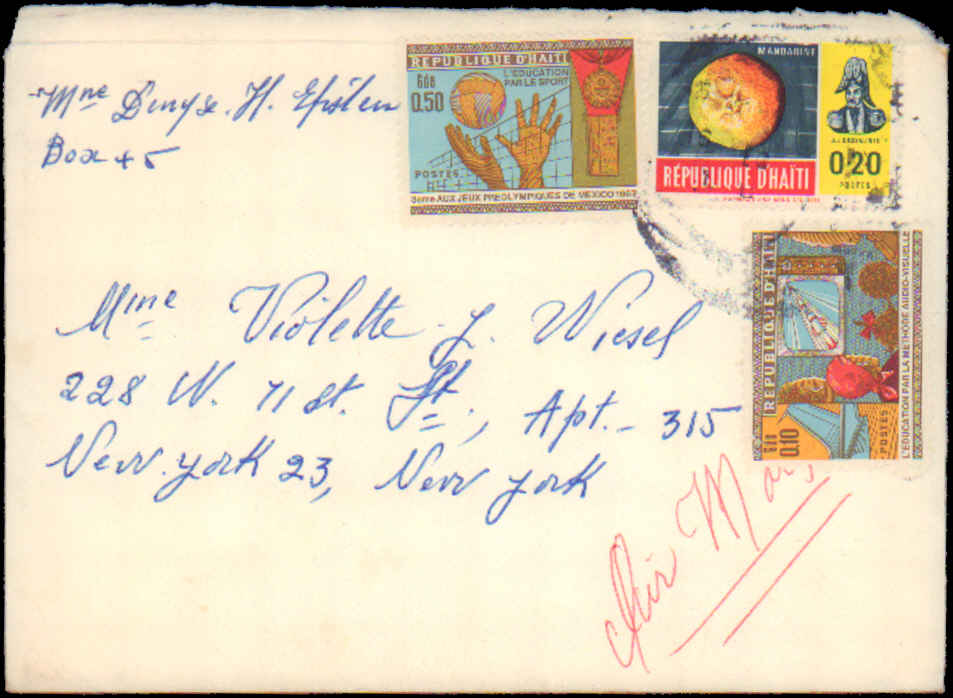 Mme Denyse. H. Epstein
Box 45
REPUBLIQUE D'HAITI
Gde
0.50
L'EDUCATION
PAR LE SPORT
POSTES
3eme AUX JEUX PREOLYMPIQUES DE MEXICO 1967
MANDARINE
0.20
POSTES
RÉPUBLIQUE D'HAÏTI
REPUBLIQUE D'HAITI
Gde
0.10
POSTES
L'EDUCATION PAR LA METHODE AUDIO-VISUELLE
Mme Violette J. Wiesel
228 W. 71 st. St., Apt. - 315
New-york 23, New york
Air Mail